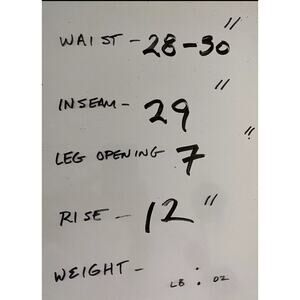 WAIST - 28-30"
INSEAM - 29"
LEG OPENING 7"
RISE - 12"
WEIGHT - LB : OZ